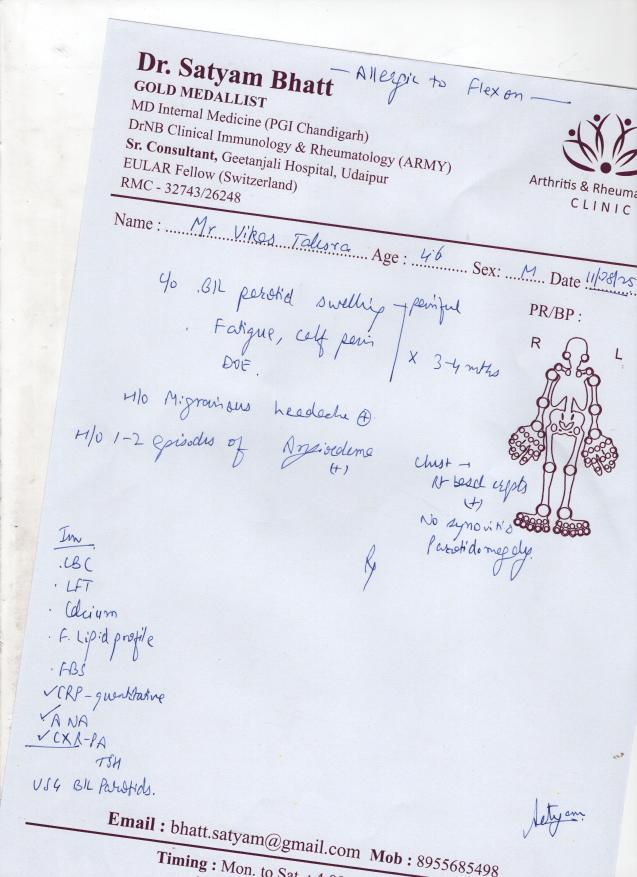 — Allergic to Flexon —
Dr. Satyam Bhatt
GOLD MEDALLIST
MD Internal Medicine (PGI Chandigarh)
DrNB Clinical Immunology & Rheumatology (ARMY)
Sr. Consultant, Geetanjali Hospital, Udaipur
EULAR Fellow (Switzerland)
RMC - 32743/26248
Arthritis & Rheuma
CLINIC
Name : Mr Vikas Age : 46 Sex: M Date 11/08/25
PR/BP :
R L
c/o B/L parotid swelling → painful
Fatigue, calf pain
DOE.
x 3-4 mths
H/O Migrainous headache (+)
H/O 1-2 episodes of Angioedema
(+)
Chest →
Rt basal crepts
(+)
No synovitis
Parotidomegaly.
Rx
Inv
. CBC
. LFT
. Calcium
. F. Lipid profile
. FBS
✓ CRP - quantitative
✓ ANA
✓ CXR-PA
TSH
USG B/L Parotids.
Satyam
Email : bhatt.satyam@gmail.com Mob : 8955685498
Timing : Mon. to Sat.